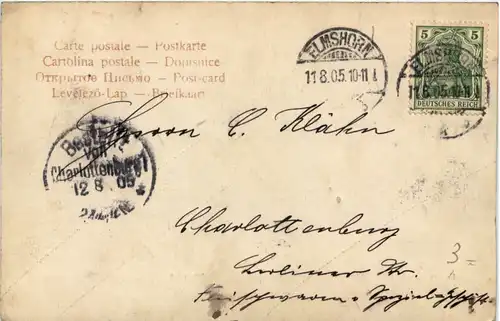 Carte postale — Postkarte
Cartolina postale — Dopisnice
Открытое Письмо — Post-card
Levelező-Lap — Briefkaart
ELMSHORN
11.8.05.10-11
5 5
DEUTSCHES REICH
ELMSHORN
11.8.05.10-11
Herrn C. Klähn
Bestellt
vom
Charlottenburg 1
12 8 05
Charlottenburg
Berliner Str.
3=